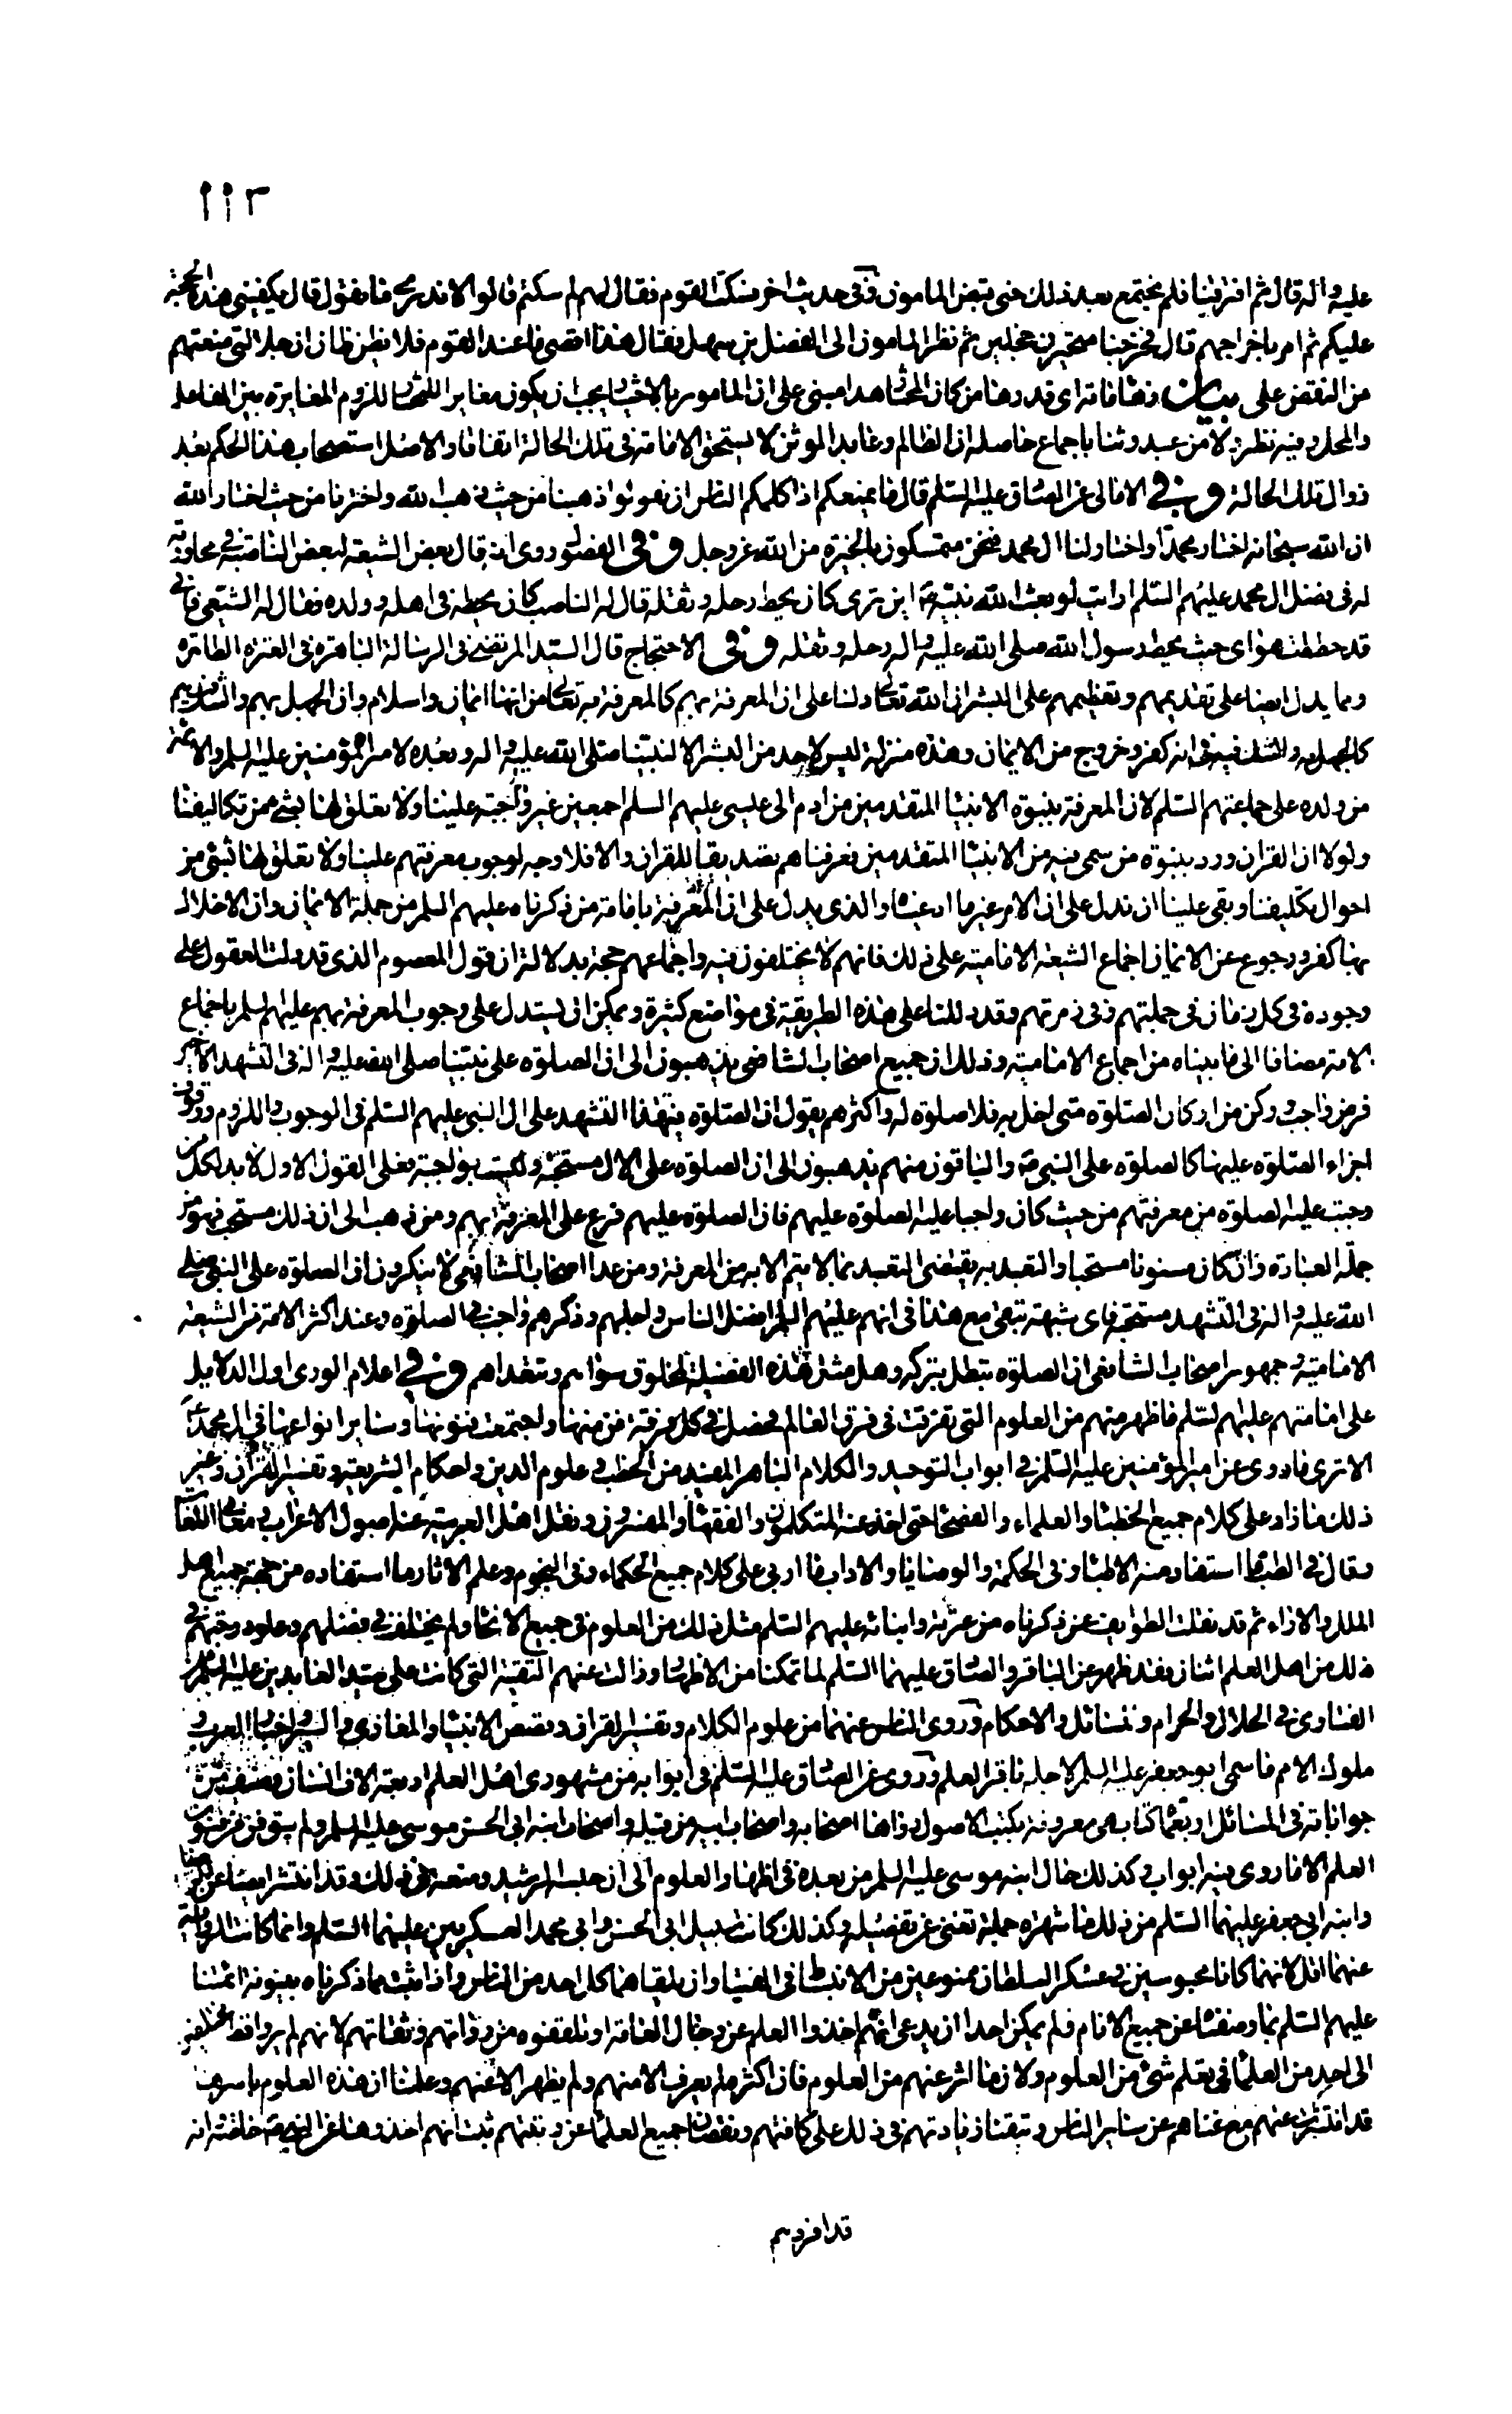 ١١٣
عليه و اله قال ثم افترقنا فلم نجتمع بعد ذلك حتى قبض المامون و فى حديث اخر فسكت القوم فقال لهم لم سكتم قالوا لا ندرى ما نقول قال يكفينى هذه الحجة
عليكم ثم امر باخراجهم قال فخرجنا متحيرين خجلين ثم نظر المامون الى الفضل بن سهل فقال هذا اقصى ما عند القوم فلا يظن ظان ان جلالتى منعتهم
من النقض على بيان
و المحل و فيه نظر لا من عبد وثنا باجماع حاصله ان الظالم و عابد الوثن لا يستحق الامامة فى تلك الحالة اتفاقا و الاصل استصحاب هذا الحكم بعد
زوال تلك الحالة و فى الامالى عن الصادق عليه السلم قال ما يمنعكم اذا كلمكم الناس ان تقولوا ذهبنا من حيث ذهب الله و اخترنا من حيث اختار الله
ان الله سبحانه اختار محمدا و اختار لنا ال محمد فنحن متمسكون بالخيرة من الله عز و جل و فى الفصول روى انه قال بعض الشيعة لبعض الناصبة فى محاورته
له فى فضل ال محمد عليهم السلم ارايت لو بعث الله نبيه ص اين ترى كان يحط رحله و ثقله قال له الناصب كان يحطه فى اهله و ولده فقال له الشيعى فانى
قد حططت هواى حيث يحط رسول الله صلى الله عليه و اله رحله و ثقله و فى الاحتجاج قال السيد المرتضى فى الرسالة الباهرة فى العترة الطاهرة
و مما يدل ايضا على تقديمهم و تعظيمهم على البشر ان الله تعالى دلنا على ان المعرفة بهم كالمعرفة به تعالى من انها ايمان و اسلام و ان الجهل بهم و الشك فيهم
كالجهل به و الشك فيه فى انه كفر و خروج من الايمان و هذه منزلة ليس لاحد من البشر الا لنبينا صلى الله عليه و اله و بعده لامير المؤمنين عليه السلم و الائمة
من ولده على جماعتهم السلم لان المعرفة بنبوة الانبيا المتقدمين من ادم الى عيسى عليهم السلم اجمعين غير واجبة علينا و لا تعلق لها بشئ من تكاليفنا
و لولا ان القران ورد بنبوة من سمى فيه من الانبيا المتقدمين فعرفناهم تصديقا للقران و الا فلا وجه لوجوب معرفتهم علينا و لا تعلق لها بشئ من
احوال تكليفنا و بقى علينا ان ندل على ان الامر غير ما ادعيناه و الذى يدل على ان المعرفة بامامة من ذكرناه عليهم السلم من جملة الايمان و ان الاخلال
بها كفر و رجوع عن الايمان اجماع الشيعة الامامية على ذلك فانهم لا يختلفون فيه و اجماعهم حجة بدلالة ان قول المعصوم الذى قد دلت العقول على
وجوده فى كل زمان فى جملتهم و فى زمرتهم و قد دللنا على هذه الطريقة فى مواضع كثيرة و يمكن ان يستدل على وجوب المعرفة بهم عليهم السلم باجماع
الامة مضافا الى ما بيناه من اجماع الامامية و ذلك ان جميع اصحاب الشافعى يذهبون الى ان الصلوة على نبينا صلى الله عليه و اله فى التشهد الاخير
فرض واجب و ركن من اركان الصلوة متى اخل به فلا صلوة له و اكثرهم يقول ان الصلوة فى هذا التشهد على ال النبى عليهم السلم فى الوجوب و اللزوم و وقوف
اجزاء الصلوة عليها كالصلوة على النبى ص و الباقون منهم يذهبون الى ان الصلوة على الال مستحبة و ليست بواجبة فعلى القول الاول لا بد لكل من
وجبت عليه الصلوة من معرفتهم من حيث كان واجبا عليه الصلوة عليهم فان الصلوة عليهم فرع على المعرفة بهم و من ذهب الى ان ذلك مستحب فهو من
جملة العبادة و ان كان مسنونا مستحبا و التعبد به يقتضى التعبد بما لا يتم الا به من المعرفة و من عدا اصحاب الشافعى لا ينكرون ان الصلوة على النبى صلى
الله عليه و اله فى التشهد مستحبة فاى شبهة تبقى مع هذا فى انهم عليهم السلم افضل الناس و اجلهم و ذكرهم واجب فى الصلوة و عند اكثر الامة من الشيعة
الامامية و جمهور اصحاب الشافعى ان الصلوة تبطل بتركه و هل مثل هذه الفضيلة لمخلوق سواهم و تتعداهم و فى اعلام الورى اول الدلايل
على امامتهم عليهم السلم ما ظهر منهم من العلوم التى تفرقت فى فرق العالم فحصل فى كل فرقة فن منها و اجتمعت فنونها و ساير انواعها فى ال محمد
الا ترى ما روى عن امير المؤمنين عليه السلم فى ابواب التوحيد و الكلام الباهر المفيد من الخطب و علوم الدين و احكام الشريعة و تفسير القران و غير
ذلك ما زاد على كلام جميع الخطبا و العلماء و الفصحا حتى اخذ عنه المتكلمون و الفقها و المفسرون و نقل اهل العربية عنه اصول الاعراب و معانى اللغات
و قال فى الطب ما استفاد منه الاطبا و فى الحكمة و الوصايا و الاداب ما اربى على كلام جميع الحكماء و فى النجوم و علم الاثار ما استفاده من جهته جميع اهل
الملل و الاراء ثم قد نقلت الطوايف عن ذكرناه من عترته و ابنائه عليهم السلم مثل ذلك من العلوم فى جميع الانحا و لم يختلف فى فضلهم و علو درجتهم فى
ذلك من اهل العلم اثنان فقد ظهر عن الباقر و الصادق عليهما السلم لما تمكنا من الاظهار و زالت عنهما التقية التى كانت على سيد العابدين عليه السلم من
الفتاوى فى الحلال و الحرام و المسائل و الاحكام و روى الناس عنهما من علوم الكلام و تفسير القران و قصص الانبيا و المغازى و السير و اخبار العرب و
ملوك الامم ما سمى ابو جعفر عليه السلم لاجله باقر العلم و روى عن الصادق عليه السلم فى ابوابه من مشهورى اهل العلم اربعة الاف انسان و صنف من
جواباته فى المسائل اربعمائة كتاب هى معروفة بكتب الاصول رواها اصحابه و اصحاب ابيه من قبله و اصحاب ابنه ابى الحسن موسى عليه السلم و لم يبق فن من فنون
العلم الا ما روى فيه ابواب و كذلك حال ابنه موسى عليه السلم من بعده فى اظهار العلوم الى ان حبسه الرشيد و منعه من ذلك و قد انتشر ايضا عن الرضا
و ابنه ابى جعفر عليهما السلم من ذلك ما شهرة جملته تغنى عن تفصيله و كذلك كانت سبيل ابى الحسن و ابى محمد العسكريين عليهما السلم و انما كانت الرواية
عنهما اقل لانهما كانا محبوسين فى عسكر السلطان ممنوعين من الانبساط فى الفتيا و ان يلقاهما كل احد من الناس و اذا ثبت بما ذكرناه بينونة ائمتنا
عليهم السلم بما وصفنا عن جميع الانام و لم يمكن احدا ان يدعى انهم اخذوا العلم عن رجال العامة او تلقفوه من رواتهم و ثقاتهم لانهم لم يروا قط مختلفين
الى احد من العلما فى تعلم شئ من العلوم و لان ما اثر عنهم من العلوم فان اكثره لم يعرف الا منهم و لم يظهر الا عنهم و علمنا ان هذه العلوم باسرها
قد انتشرت عنهم مع غناهم عن ساير الناس و تيقنا زيادتهم فى ذلك على كافتهم و نقصان جميع العلما عن رتبتهم ثبت انهم اخذوها عن النبى ص خاصة و انه
قد افردهم